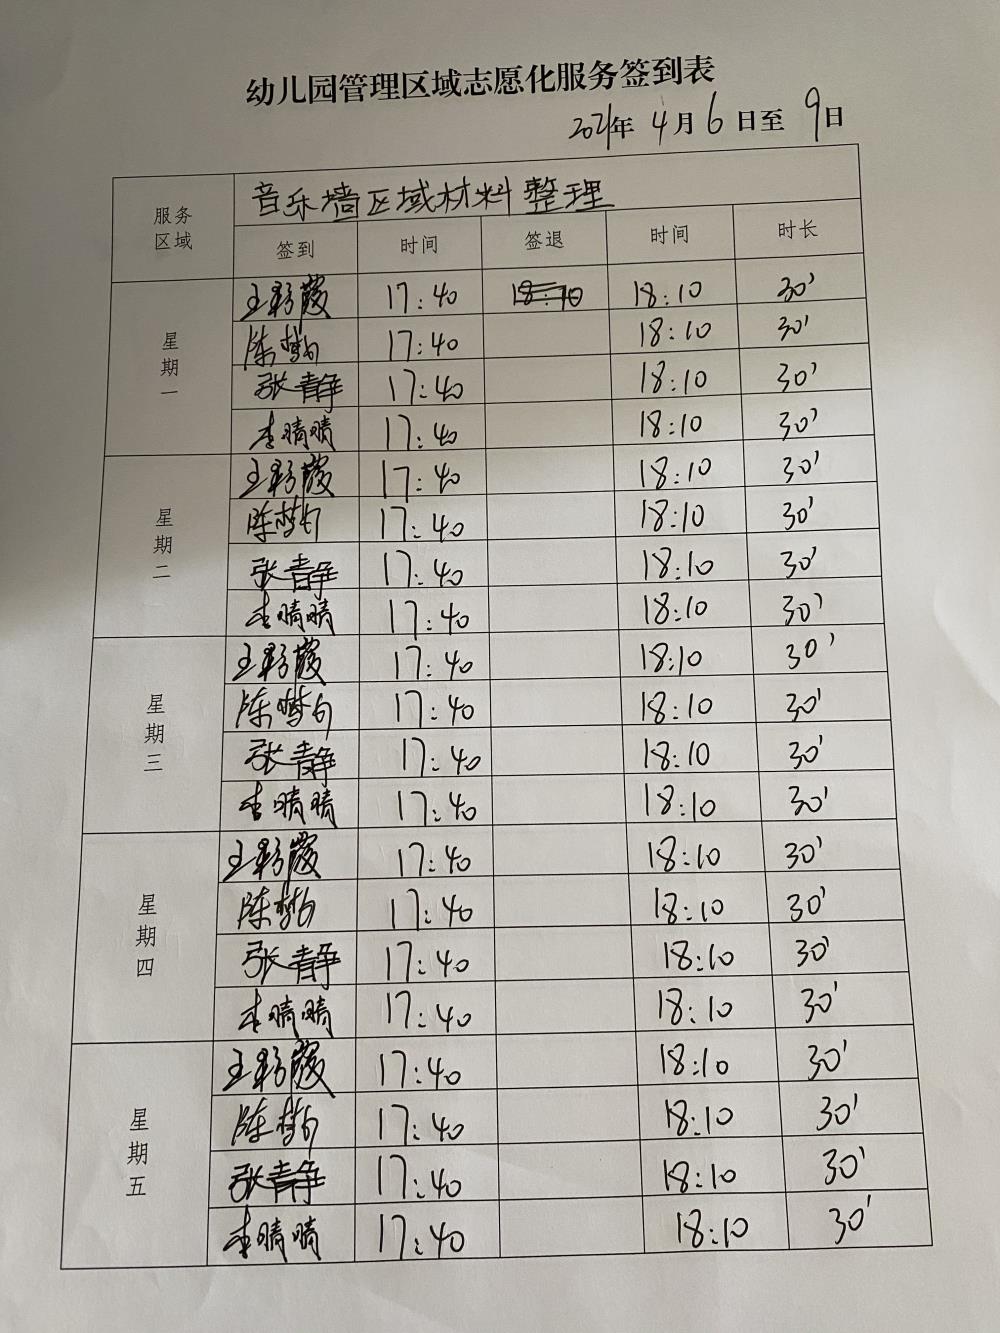 幼儿园管理区域志愿化服务签到表
2021年 4月6日至 9日
服务区域 音乐墙区域材料整理
签到 时间 签退 时间 时长
星期一
王彩霞 17:40 18:10 18:10 30'
陈梦 17:40 18:10 30'
张静 17:40 18:10 30'
李晴晴 17:40 18:10 30'
星期二
王彩霞 17:40 18:10 30'
陈梦 17:40 18:10 30'
张静 17:40 18:10 30'
李晴晴 17:40 18:10 30'
星期三
王彩霞 17:40 18:10 30'
陈梦 17:40 18:10 30'
张静 17:40 18:10 30'
李晴晴 17:40 18:10 30'
星期四
王彩霞 17:40 18:10 30'
陈梦 17:40 18:10 30'
张静 17:40 18:10 30'
李晴晴 17:40 18:10 30'
星期五
王彩霞 17:40 18:10 30'
陈梦 17:40 18:10 30'
张静 17:40 18:10 30'
李晴晴 17:40 18:10 30'